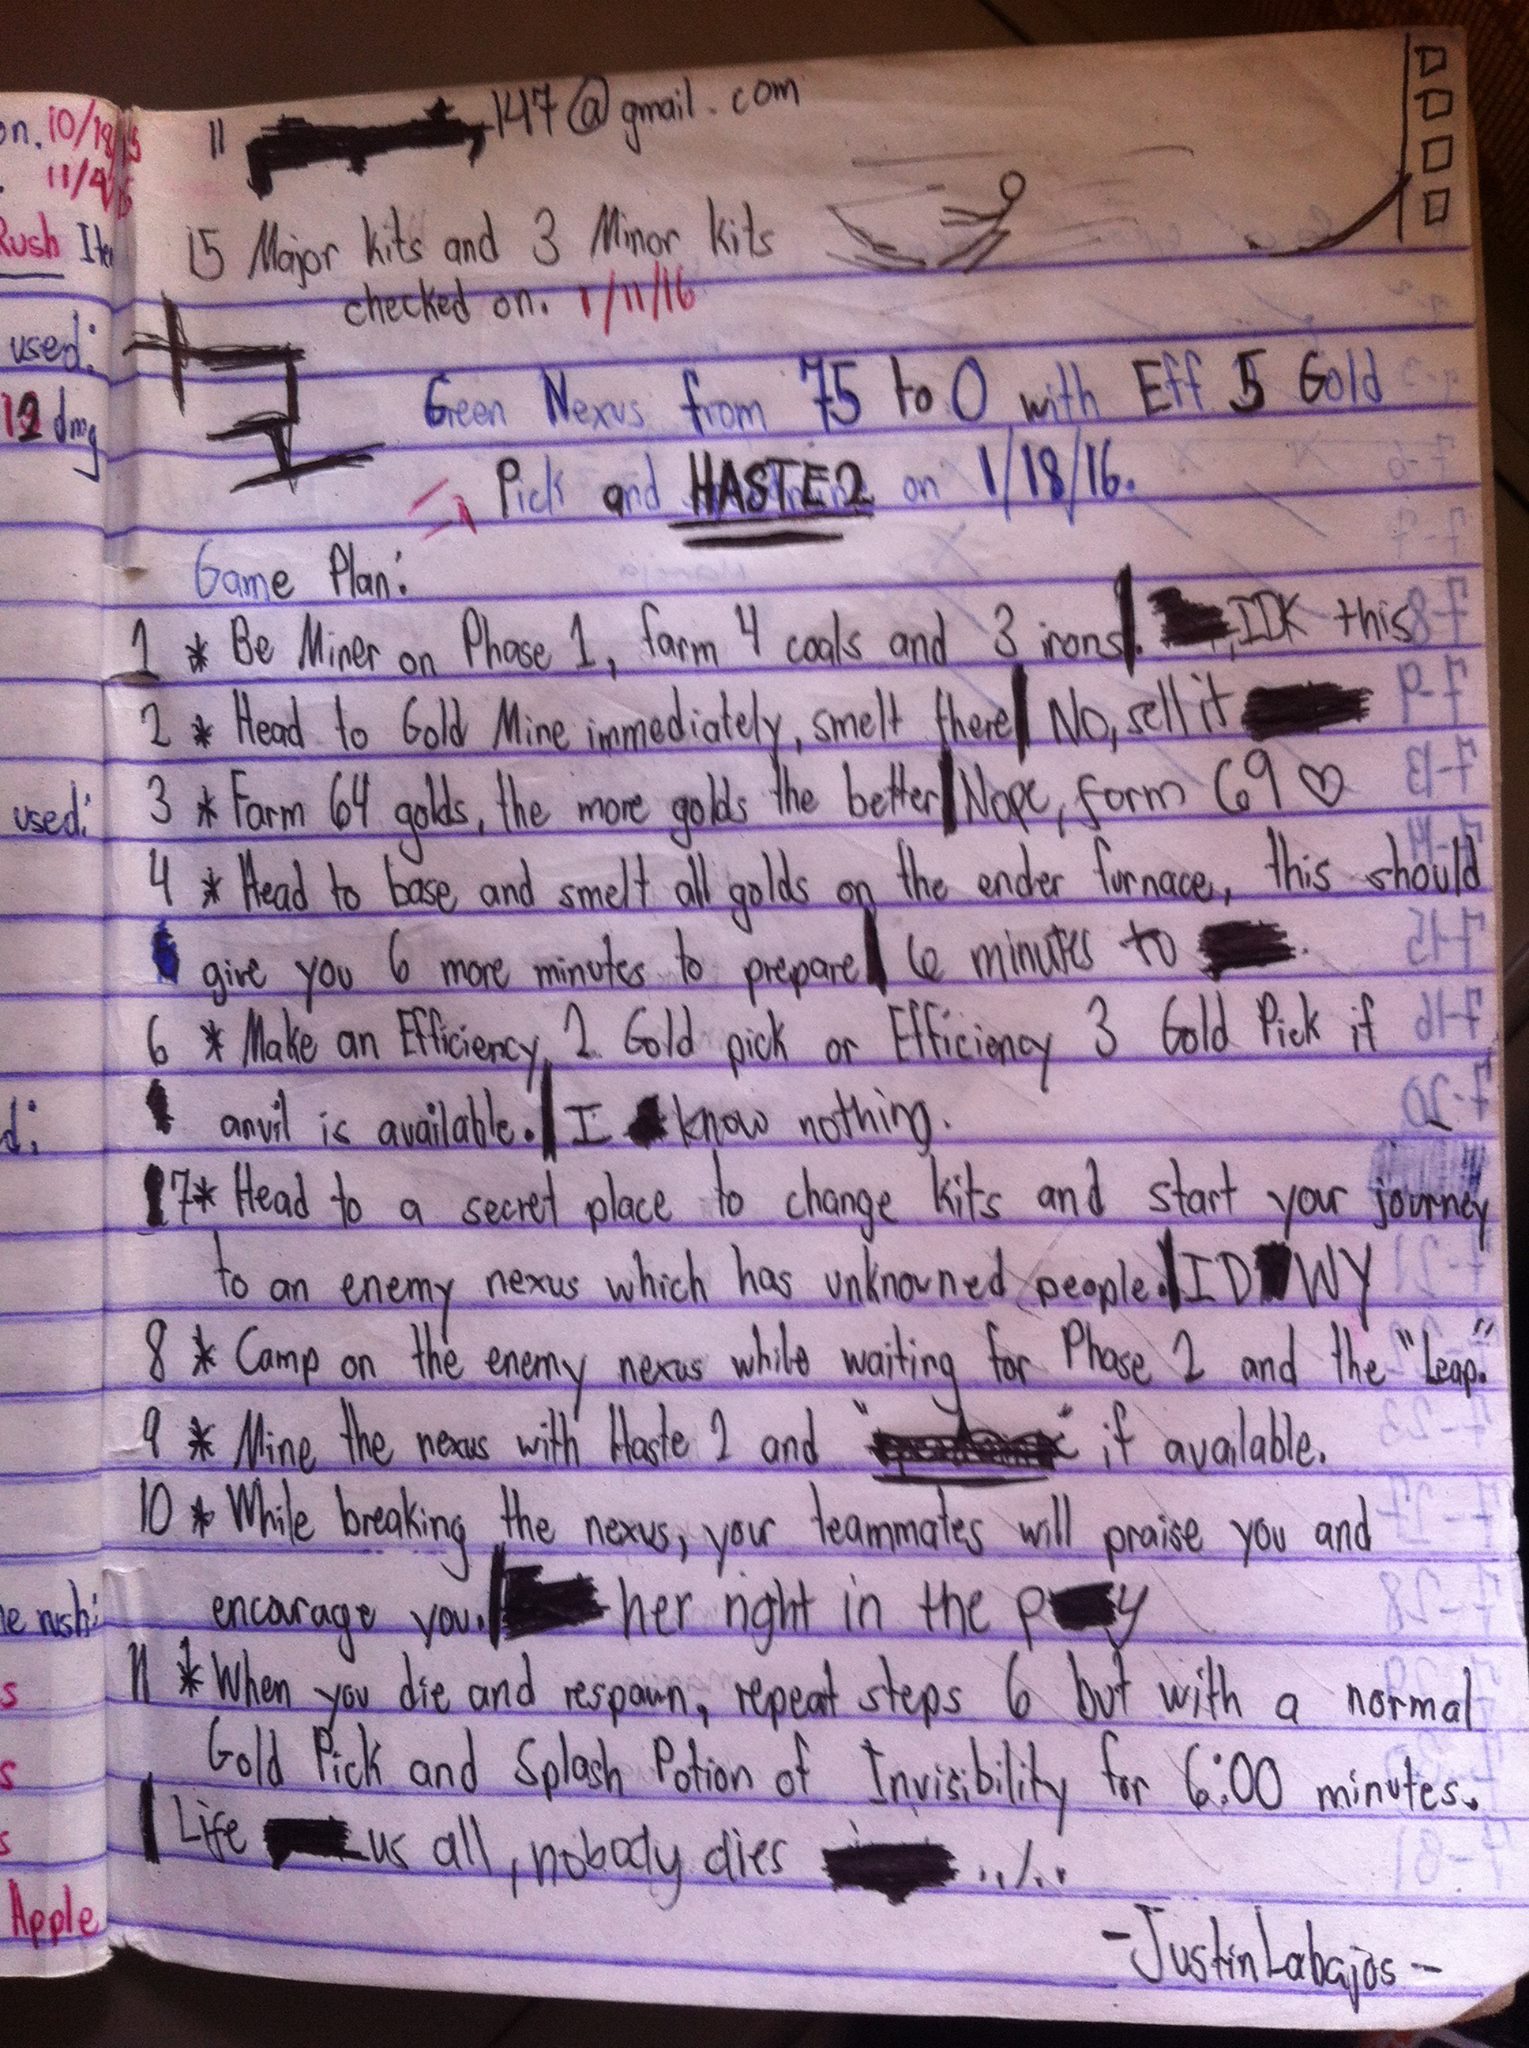 on. 10/18/15
11/4/15
Rush
used:
12 dmg
used:
d:
rush:
s
s
s
Apple
11 147@gmail.com
15 Major kits and 3 Minor kits
checked on. 1/11/16
Green Nexus from 75 to 0 with Eff 5 Gold
Pick and HASTE2 on 1/18/16.
Game Plan:
1 * Be Miner on Phase 1, farm 4 coals and 3 irons. IDK this
2 * Head to Gold Mine immediately, smelt there No, sell it
3 * Farm 64 golds, the more golds the better Nope, farm 69 ♡
4 * Head to base and smelt all golds on the ender furnace, this should
give you 6 more minutes to prepare 6 minutes to
6 * Make an Efficiency 2 Gold pick or Efficiency 3 Gold Pick if
anvil is available. I know nothing.
7 * Head to a secret place to change kits and start your journey
to an enemy nexus which has unknowned people. ID WY
8 * Camp on the enemy nexus while waiting for Phase 2 and the "Leap."
9 * Mine the nexus with Haste 2 and " " if available.
10 * While breaking the nexus, your teammates will praise you and
encourage you. her right in the p y
11 * When you die and respawn, repeat steps 6 but with a normal
Gold Pick and Splash Potion of Invisibility for 6:00 minutes.
Life us all, nobody dies ../..
- Justin Labajos -